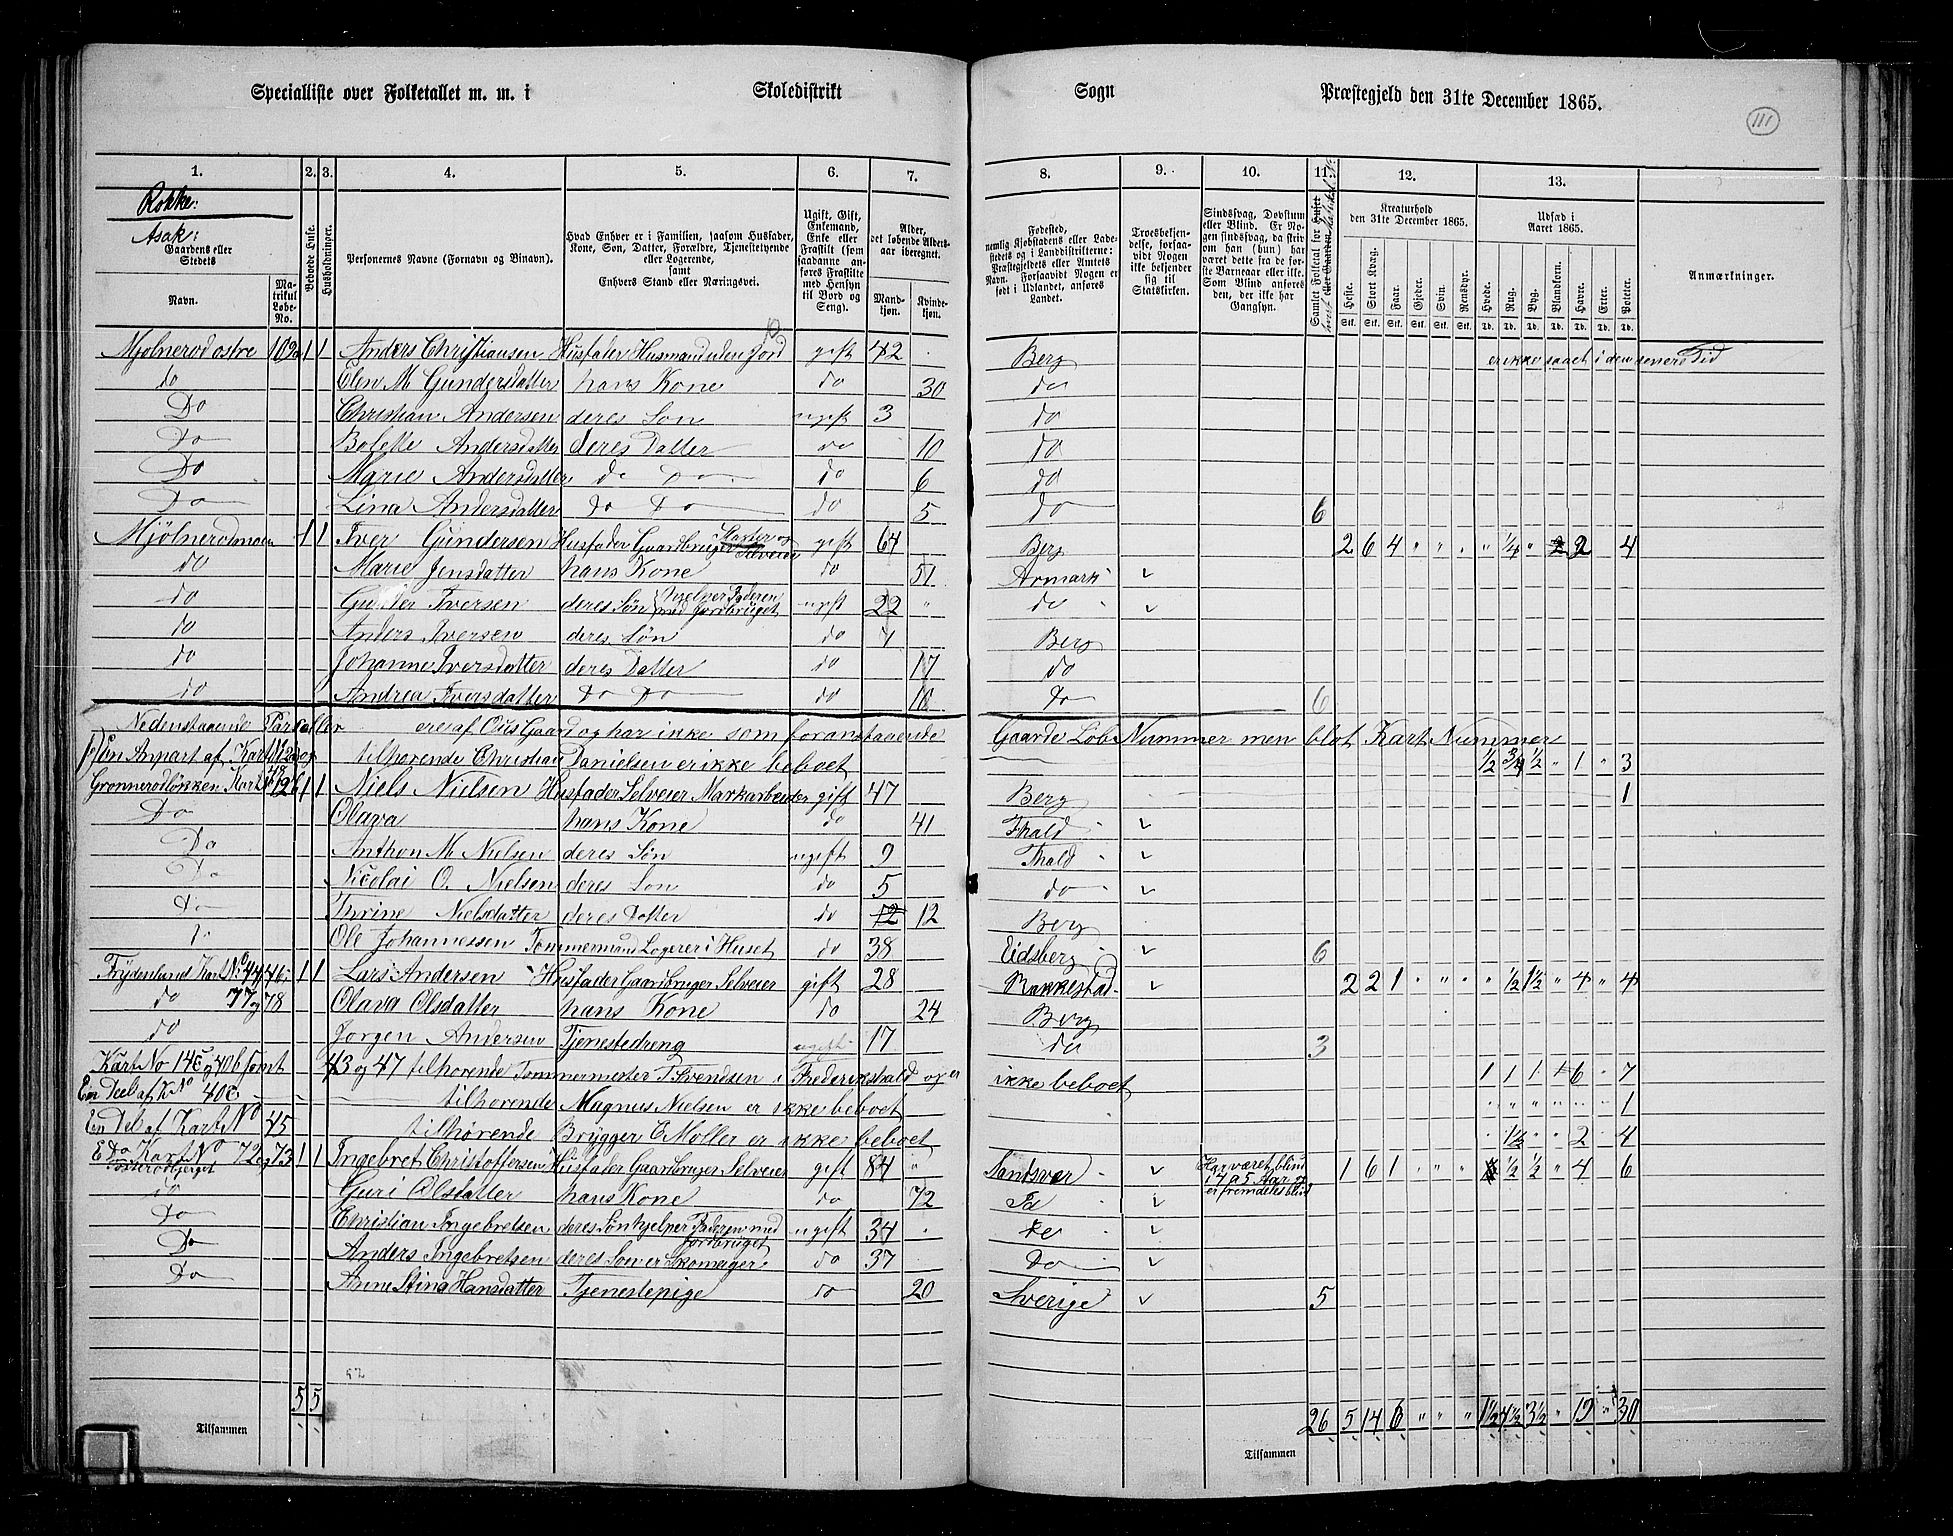 Specialliste over Folketallet m. m. i Skoledistrikt Sogn Præstegjeld den 31te December 1865.
111
1. 2. 3. 4. 5. 6. 7. 8. 9. 10. 11. 12. 13.
Rokke:
Asak:
Gaardens eller Stedets
Navn.
Matrikul Løbe-No.
Beboede Huse.
Husholdninger.
Personernes Navne (Fornavn og Binavn).
Hvad Enhver er i Familien, saasom Husfader, Kone, Søn, Datter, Forældre, Tjenestetyende eller Logerende, samt Enhvers Stand eller Næringsvei.
Ugift, Gift, Enkemand, Enke eller Fraskilt (som saadanne anføres Fraskilte med Hensyn til Bord og Seng).
Alder, det løbende Alders-aar iberegnet.
Mandkjøn.
Kvindekjøn.
Fødested, nemlig Kjøbstadens eller Ladestedets og i Landdistrikterne: Præstegjeldets eller Amtets Navn. Forsaavidt Nogen er født i Udlandet, anføres Landet.
Troesbekjendelse, forsaavidt Nogen ikke bekjender sig til Statskirken.
Sindssvag, Døvstum eller Blind. Er Nogen sindssvag, da skriv om han (hun) har været dette fra de første Barneaar eller ikke. Som Blind anføres den, der ikke har Gangsyn.
Samlet Folketal for
Kreaturhold den 31te December 1865.
Heste. Stort Kvæg. Faar. Gjeder. Svin. Rensdyr.
Stk. Stk. Stk. Stk. Stk. Stk.
Udsæd i Aaret 1865.
Hvede. Rug. Byg. Blandkorn. Havre. Erter. Poteter.
Td. Td. Td. Td. Td. Td. Td.
Anmærkninger.
Mjølnerød østre 109 1 1 Anders Christiansen Husfader Husmand uden Jord gift 42 Berg er ikke saaet i den senere Tid
do Elen M Gundersdatter hans Kone do 30 do
Do Christian Andersen deres Søn ugift 3 do
Do Bolette Andersdatter deres Datter do 10 do
Do Marie Andersdatter do Do do 6 do
Do Lina Andersdatter Do Do do 5 do 6
Mjølnerødmoen 1 1 Iver Gundersen Husfader Gaardbruger og Selveier gift 64 Berg 2 6 4 " " " " 1/4 " 2 2 4
do Marie Jensdatter hans Kone do 51 Armark
do Gunder Iversen deres Søn hjelper Faderen med Jordbruget ugift 22 " do
do Anders Iversen deres Søn do 7 Berg
do Johanne Iversdatter deres Datter do 17 do
do Andrea Iversdatter Do Do do Do 6
Nedenstaaende Parseller ere af Odis Gaard og har ikke som foranstaaende Gaarde Løbe Nummer men blot Kart Nummer
En Anpart af Kart No tilhørende Christian Danielsen er ikke beboet 1/2 3/4 1/2 " 1 " 3
Grønnerødløkken Kart No 126 1 1 Niels Nielsen Husfader Selveier Markarbeider gift 47 Berg 1
Do Olava hans Kone do 41 Fhald
Do Anthon M Nielsen deres Søn ugift 9 Fhald
Do Nicolai O. Nielsen deres Søn do 5 do
Do Thrine Nielsdatter deres Datter do 12 12 Berg
Ole Johannessen Tømmermand Logerer i Huset do 38 Eidsberg 6
Frydenlund Kart No 44, 46, 1 1 Lars Andersen Husfader Gaardbruger Selveier gift 28 Rakkestad 2 2 1 " " " " 1/2 1 1/2 " 4 " 4
do 77 og 78 Olava Olsdatter hans Kone do 24 Berg
do Jørgen Andersen Tjenestedreng ugift 17 do 3
Kart No 14 c og 40 b samt 43 og 47 tilhørende Tømmermester T Svendsen i Frederikshald og er ikke beboet 1 1 1 6 7
En Deel af K No 40 tilhørende Magnus Nielsen er ikke beboet 1
En Del af Kart No 45 tilhørende Brygger E Møller er ikke beboet 1 1/2 " " 2 " 4
Kart No 72 og 73 1 1 Ingebret Christoffersen Husfader Gaardbruger Selveier gift 84 " Sandsvær Har været blind i 4 a 5 Aar og er fremdeles blind 1 6 1 " " " 1/2 1/2 " 4 6
do Guri Olsdatter hans Kone do 72 Do
Do Christian Ingebretsen deres Søn hjelper Faderen med Jordbruget ugift 34 do
Do Anders Ingebretsen deres Søn er Skomager do 37 Do
Do Anne Stina Hansdatter Tjenestepige do 20 Sverige 5
5 5
Tilsammen
26 5 14 6 " " " 1 1/2 4 1/2 3 1/2 " 19 " 30
Tilsammen